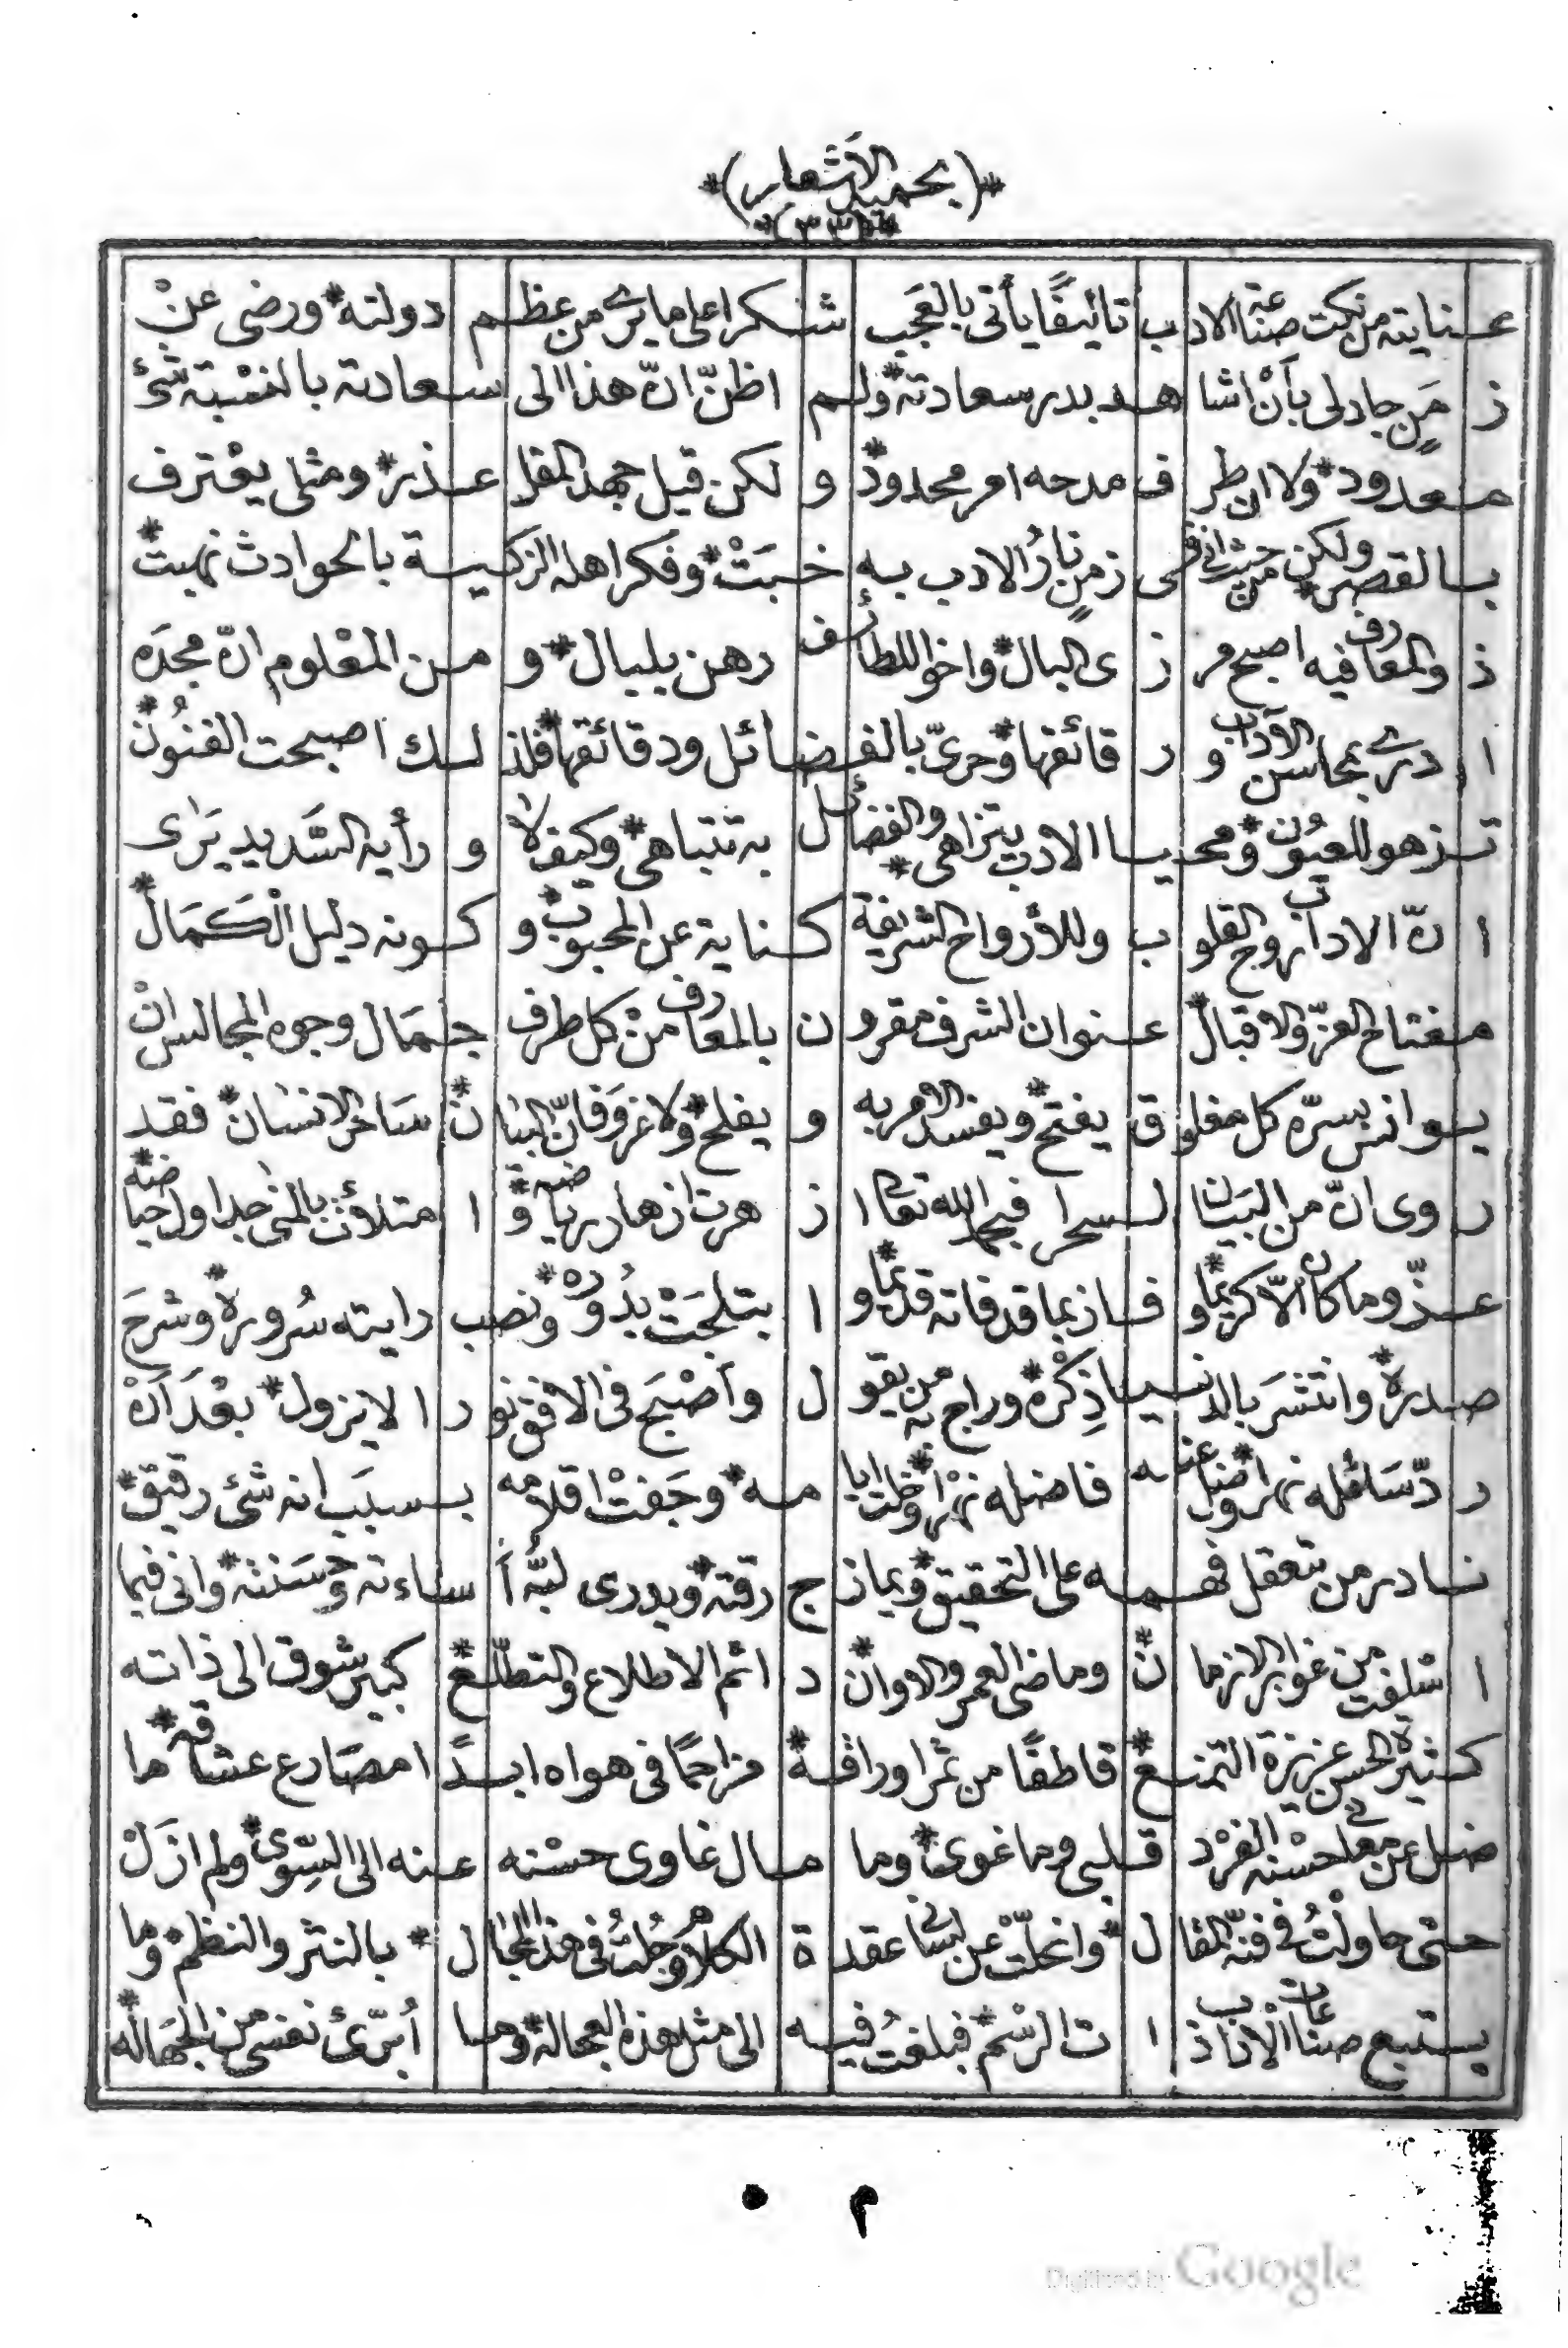 *(بحميد الاشعار)*
*(٣٣)*
عنايته من نكت صناعة الادب تاليفًا يأتى بالعجب شكرا على مايرى من عظم دولته * ورضى عنْ
زمَنٍ جاد لى بأنْ اشاهد بدر سعادته * ولم اظنّ انّ هذا الى سعادته بالنسْبة شئ
معدود * ولا ان طرف مدحه امر محدود * و لكن قيل جهد المقل عذر * ومثلى يعْترف
بالقصر * ولكن من حيث انى فى زمنٍ نارُ الادب به خبَتْ * وفكر اهله الزكية بالحوادث نهبت *
ذ والمعارف فيه اصبح مرزى البال * واخو اللطائف رهن بلبال * و من المعْلوم انّ مجدَه
ادرى بمحاسن الآداب و رقائقها * وحرىّ بالفضائل ودقائقها * فلذلك اصبحت الفنُون *
تزهو للعيُون * ومحيا الادب يتزاهى * والفضائل به تتباهى * وكيف لا و رأيه السَّديد يَرى
انّ الاداب روح القلوب وللأرواح الشريفة كناية عن المحبوب * و كونه دليل الْكَمَال *
مفتاح العزّ والاقبال * عنوان الشرف مقرون بالمعارف منْ كل طرف جمَال وجوه المجالس انْ
يوانس بسرّه كل مغلوق يفتح * ويفسد الامر به و يفلح * ولا غروَ فانّ البيان * سَاحر الانسَان * فقد
روى انّ من البيَان لسحرا فيحمد الله تعالى اذ هرت ازهار رياضه * و امتلأتْ بالمنى جداول حياضه *
عذّ وما كان الاّ كريمًا * و فاز بما قد فاته قديمًا * و ابتلجَتْ بدُوره * ونصب رايته سُروره * وشرحَ
صدره * وانتشَر بالدنيا ذِكْره * وراج به من يقول واصْبَح فى الافق نورا لا يزول * بعْدَ اَنْ
ردّ سَائله نهرا * وضل عنه فاضله نهْرا * وخلت ايامه * وجَفتْ اقلامه بسبَب انه شئ رقيق *
نادر من يتعقل فهمه على التحقيق * ويمازج رقته * ويدرى لبُّه أساءته وحَسَنته * وانى فيما
اسْلفت من غوابر الازمان * وماضى العمر والاوان * دائم الاطلاع والتطلّع * كبير شوق الى ذاته
كثيرة الحسن عزيزة التمنع * قاطفًا من ثمر اوراقه * مزاحمًا فى هواه ابدًا مصَارع عشاقه * ما
ضل عن معلى حسْنه الفرْد قلبى وما غوى * وما مال غاوى حسْنه عنه الى السِّوى * ولم ازَلْ
حتى حاولْتُ فى فنه المقال * وانحلّتْ عن لسانى عقدة الكلام * وجُلتُ فى هذا المجال * بالنثر والنظم * وما
يستبع صناعات الآداب ذات الرسْم * فبلغتُ فيه الى مثل هذه العجالة * وما أبرّئ نفسى من الجهاله *
Digitized by Google